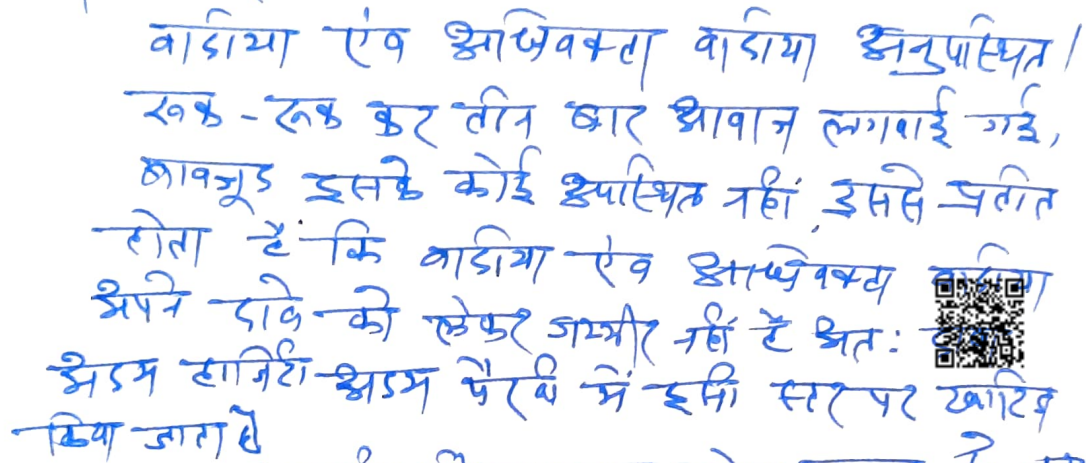 वादीया एंव अधिवक्ता वादीया अनुपस्थित।
रूक-रूक कर तीन बार आवाज लगवाई गई,
बावजूद इसके कोई उपस्थित नहीं इससे प्रतीत
होता है कि वादीया एंव अधिवक्ता
अपने दावे को लेकर गम्भीर नहीं है अत:
अदम हाजिरी अदम पैरवी में इसी स्तर पर खारिज
किया जाता है